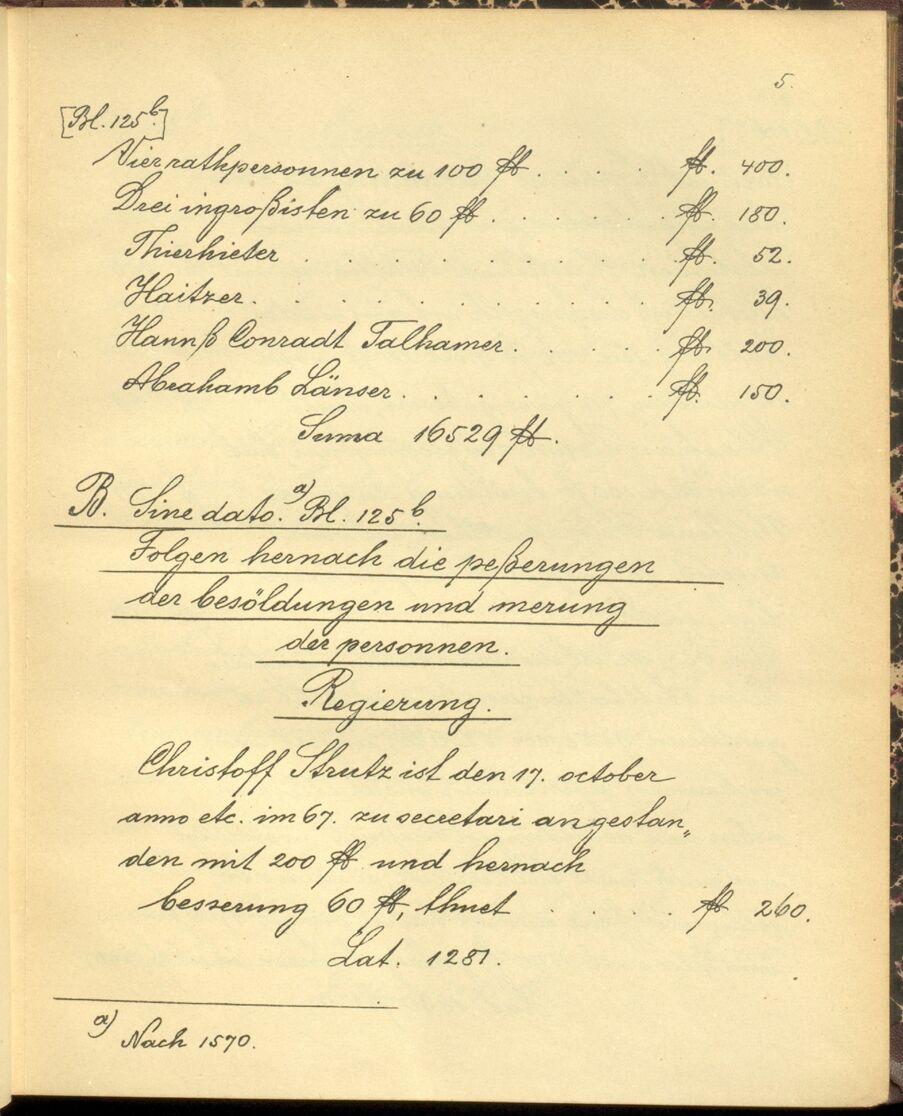 5.
[Bl. 125b.]
Vier rathpersonnen zu 100 fl. . . . . . fl. 400.
Drei ingroßisten zu 60 fl. . . . . . . fl. 180.
Thierhieter . . . . . . . . . . fl. 52.
Haitzer. . . . . . . . . . . fl. 39.
Hannß Conradt Talhamer. . . . . . fl. 200.
Abrahamb Länser. . . . . . . . fl. 150.
Suma 16529 fl.
B. Sine dato. a) Bl. 125b.
Folgen hernach die peßerungen
der besöldungen und merung
der personnen.
Regierung.
Christoff Strutz ist den 17. october
anno etc. im 67. zu secretari angestan„
den mit 200 fl. und hernach
besserung 60 fl., thuet . . . . . fl. 260.
Lat. 1281.
a) Nach 1570.